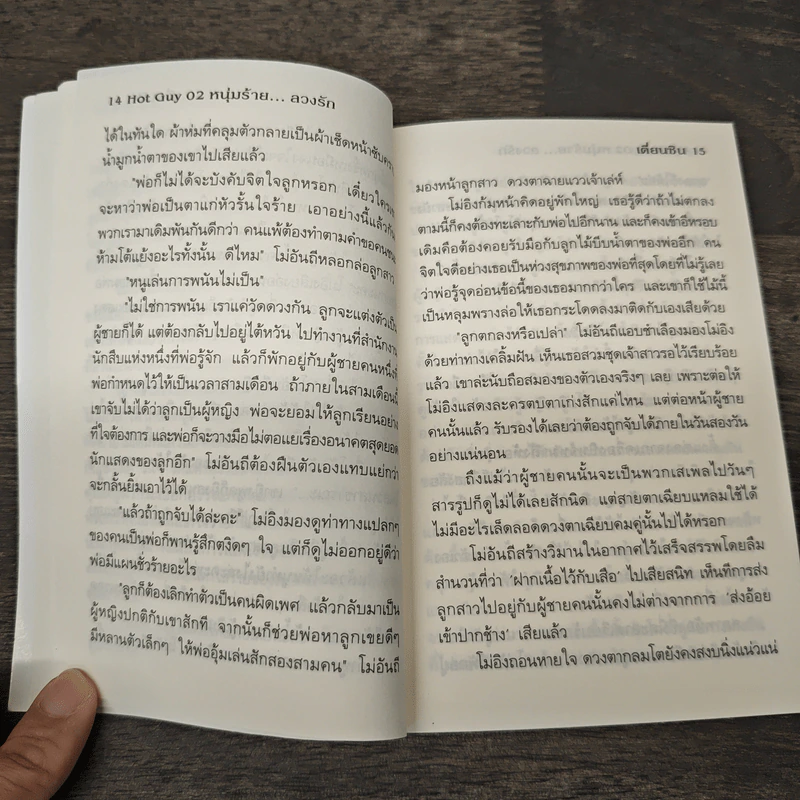 14 Hot Guy 02 หนุ่มร้าย... ลวงรัก
ได้ในทันใด ผ้าห่มที่คลุมตัวกลายเป็นผ้าเช็ดหน้าซับ
น้ำมูกน้ำตาของเขาไปเสียแล้ว
"พ่อก็ไม่ได้จะบังคับจิตใจลูกหรอก เดี๋ยวใคร
จะหาว่าพ่อเป็นตาแก่หัวรั้นใจร้าย เอาอย่างนี้แล้วกัน
พวกเรามาเดิมพันกันดีกว่า คนแพ้ต้องทำตามคำขอคนชนะ
ห้ามโต้แย้งอะไรทั้งนั้น ดีไหม" โม่อันถีหลอกล่อลูกสาว
"หนูเล่นการพนันไม่เป็น"
"ไม่ใช่การพนัน เราแค่วัดดวงกัน ลูกจะแต่งตัวเป็น
ผู้ชายก็ได้ แต่ต้องกลับไปอยู่ไต้หวัน ไปทำงานที่สำนักงาน
นักสืบแห่งหนึ่งที่พ่อรู้จัก แล้วก็พักอยู่กับผู้ชายคนหนึ่งที่
พ่อกำหนดไว้ให้เป็นเวลาสามเดือน ถ้าภายในสามเดือนนี้
เขาจับไม่ได้ว่าลูกเป็นผู้หญิง พ่อจะยอมให้ลูกเรียนอย่าง
ที่ใจต้องการ และพ่อก็จะวางมือไม่ตอแยเรื่องอนาคตสุดยอด
นักแสดงของลูกอีก" โม่อันถีต้องฝืนตัวเองแทบแย่กว่า
จะกลั้นยิ้มเอาไว้ได้
"แล้วถ้าถูกจับได้ล่ะคะ" โม่อิงมองดูท่าทางแปลกๆ
ของคนเป็นพ่อก็พานรู้สึกตงิดๆ ใจ แต่ก็ดูไม่ออกอยู่ดีว่า
พ่อมีแผนชั่วร้ายอะไร
"ลูกก็ต้องเลิกทำตัวเป็นคนผิดเพศ แล้วกลับมาเป็น
ผู้หญิงปกติกับเขาสักที จากนั้นก็ช่วยพ่อหาลูกเขยดีๆ
มีหลานตัวเล็กๆ ให้พ่ออุ้มเล่นสักสองสามคน" โม่อันถี
เตี่ยนซิน 15
มองหน้าลูกสาว ดวงตาฉายแววเจ้าเล่ห์
โม่อิงก้มหน้าคิดอยู่พักใหญ่ เธอรู้ดีว่าถ้าไม่ตกลง
ตามนี้ก็คงต้องทะเลาะกับพ่อไปอีกนาน และก็คงเข้าอีหรอบ
เดิมคือต้องคอยรับมือกับลูกไม้บีบน้ำตาของพ่ออีก คน
จิตใจดีอย่างเธอเป็นห่วงสุขภาพของพ่อที่สุดโดยที่ไม่รู้เลย
ว่าพ่อรู้จุดอ่อนข้อนี้ของเธอมากกว่าใคร และเขาก็ใช้ไม้นี้
เป็นหลุมพรางล่อให้เธอกระโดดลงมาติดกับเองเสียด้วย
"ลูกตกลงหรือเปล่า" โม่อันถีแอบชำเลืองมองโม่อิง
ด้วยท่าทางเคลิ้มฝัน เห็นเธอสวมชุดเจ้าสาวรอไว้เรียบร้อย
แล้ว เขาล่ะนับถือสมองของตัวเองจริงๆ เลย เพราะต่อให้
โม่อิงแสดงละครตบตาเก่งสักแค่ไหน แต่ต่อหน้าผู้ชาย
คนนั้นแล้ว รับรองได้เลยว่าต้องถูกจับได้ภายในวันสองวัน
อย่างแน่นอน
ถึงแม้ว่าผู้ชายคนนั้นจะเป็นพวกเสเพลไปวันๆ
สารรูปก็ดูไม่ได้เลยสักนิด แต่สายตาเฉียบแหลมใช้ได้
ไม่มีอะไรเล็ดลอดดวงตาเฉียบคมคู่นั้นไปได้หรอก
โม่อันถีสร้างวิมานในอากาศไว้เสร็จสรรพโดยลืม
สำนวนที่ว่า 'ฝากเนื้อไว้กับเสือ' ไปเสียสนิท เห็นทีการส่ง
ลูกสาวไปอยู่กับผู้ชายคนนั้นคงไม่ต่างจากการ 'ส่งอ้อย
เข้าปากช้าง' เสียแล้ว
โม่อิงถอนหายใจ ดวงตากลมโตยังคงสงบนิ่งแน่วแน่